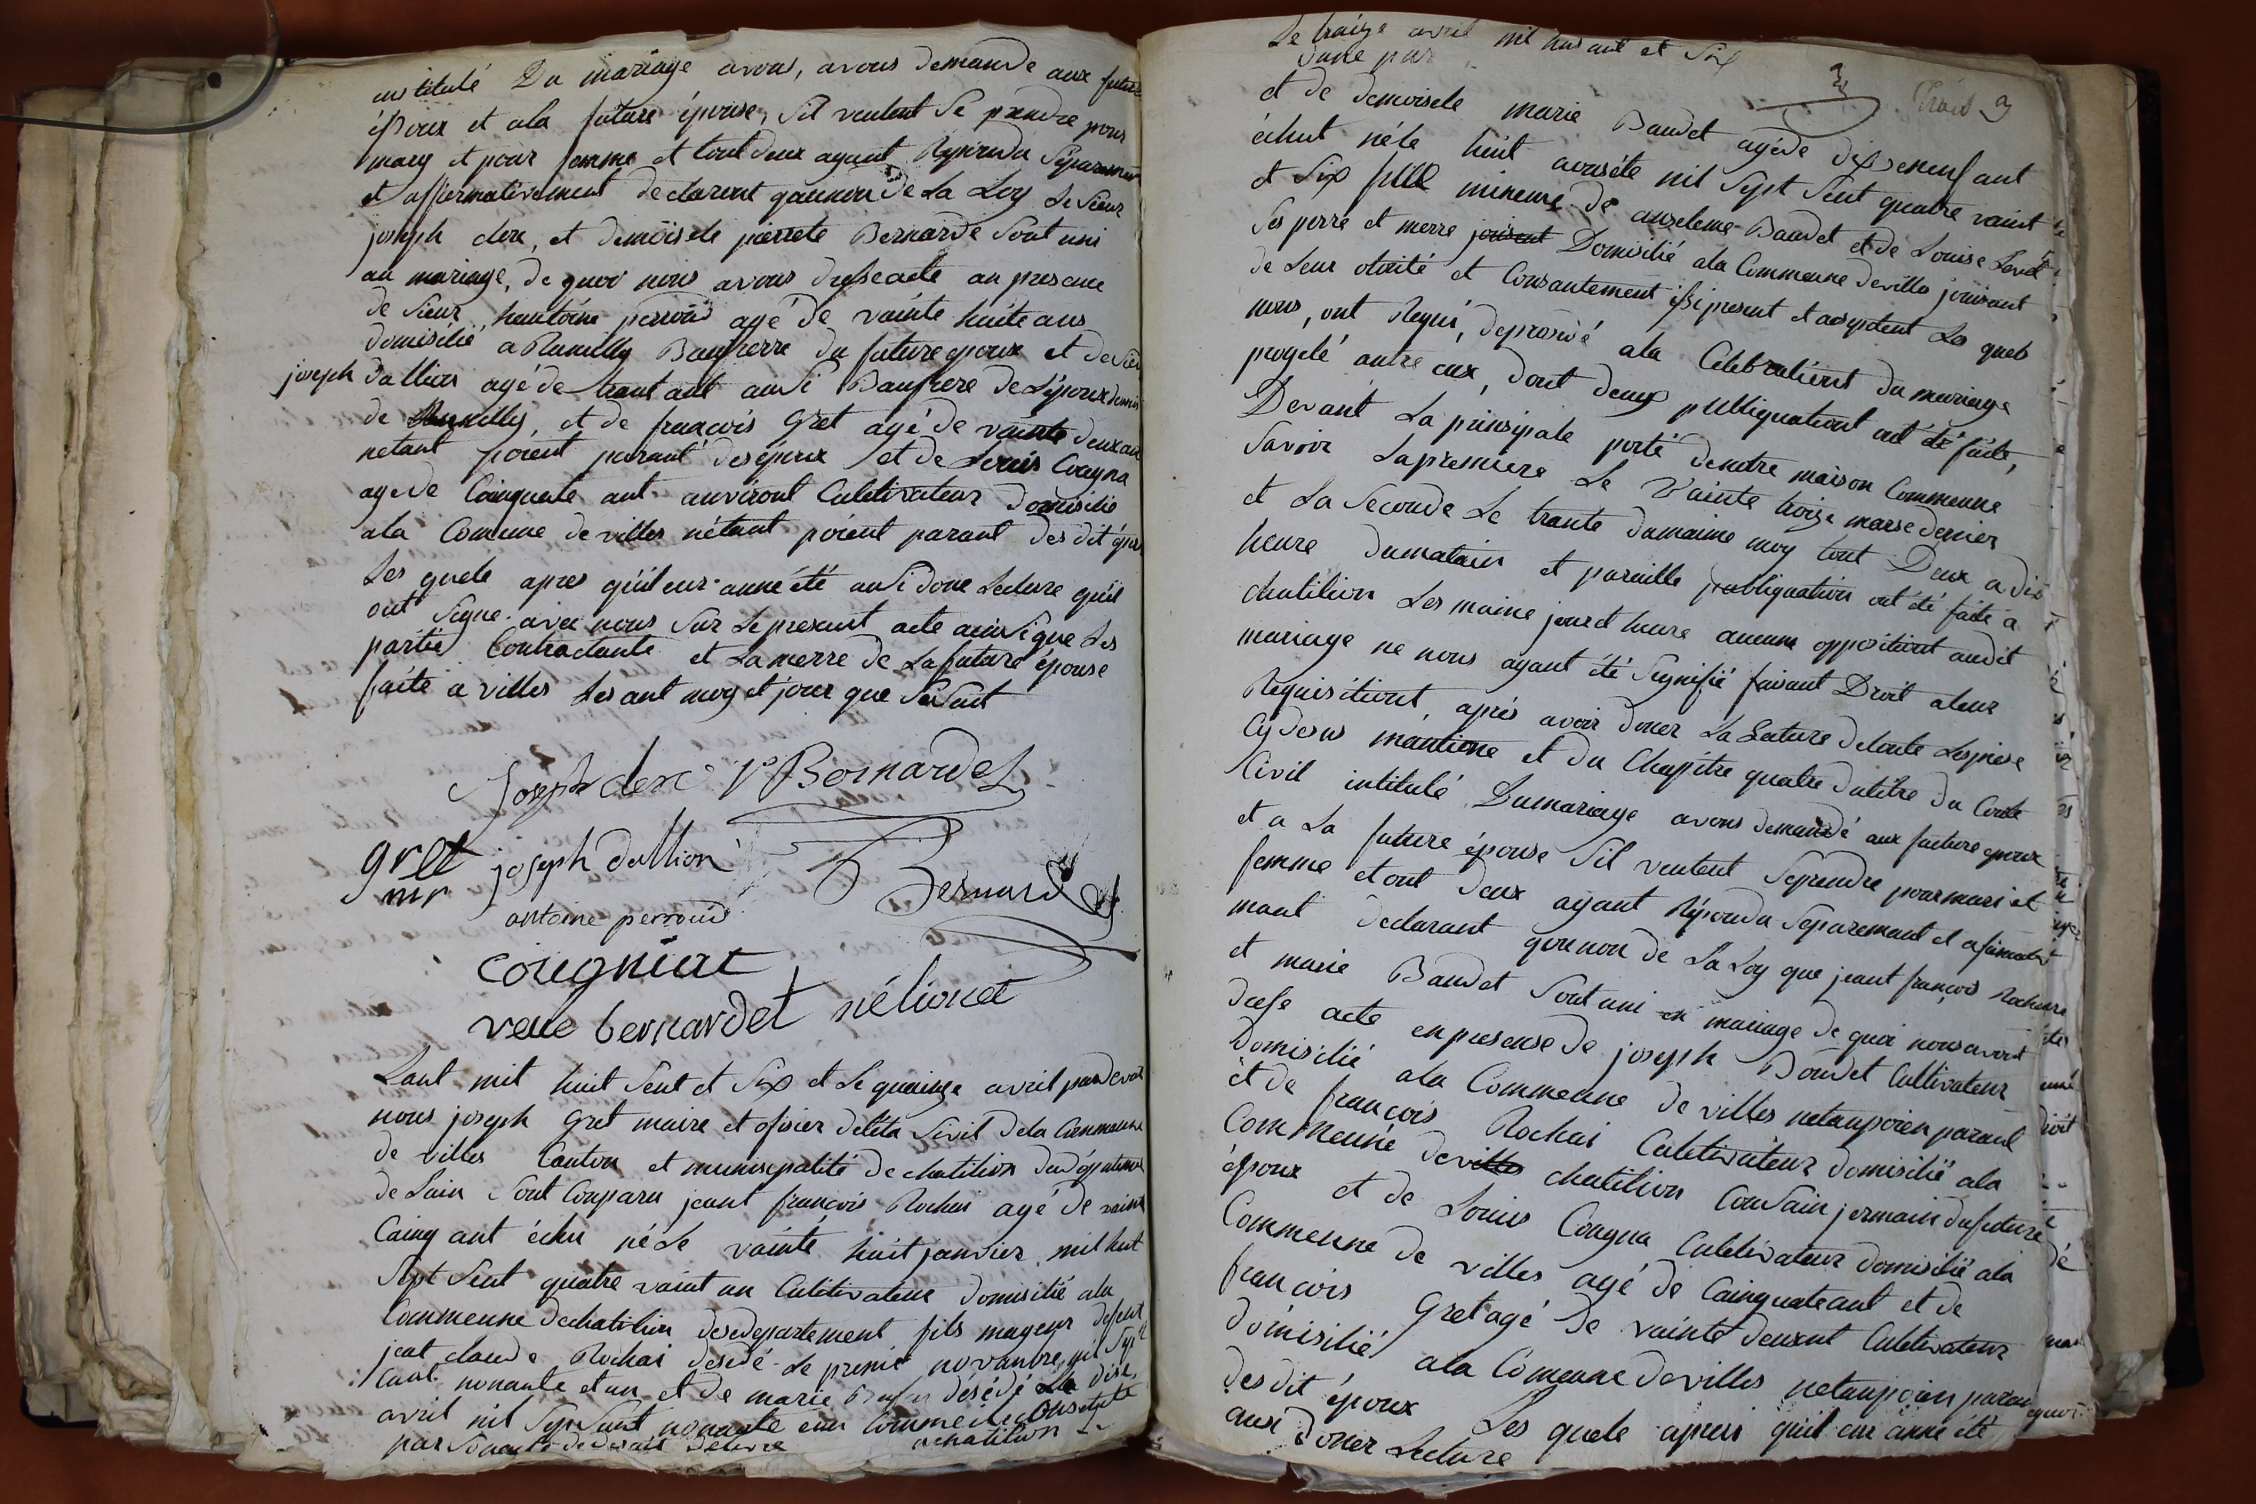 institulé Du mariage avons, avons demande aux future
époux et ala future épouse, Sil veulent Se prendre pour
mary et pour femme et tout deux ayant Répondu Séparement
et affiermativement declarent quaunon de La Loy Le Sieur
joseph clere, et demöisele pierrete Bernarde Sont uni
au mariage, de quoi nous avons dressé acte an presence
de Sieur hantoine perroud agé de vainte huite ans
domisilié a Rumilly Baufrerre du future epoux et de Sieur
joseph Dallion agé de trant ant ausi Baufrere de L'époux
de Rumilly, et de francois Gret agé de vainte deux an
netant poient parant des époux et de Louis Cougna
agede Cainquante ant anviront Culetivateur domisilié
ala Comune de villes nétant poient parant des dit époux
Les quele apres quil eur anné été ausi done Lecture quil
ont Signe avec nous Sur Le present acte ainsi que Les
partie Contractante et La merre de La future épouse
faite a villes Les ant moy et jour que Sesuit
Joseph clerc P Bernardet
gret
mr
joseph dallion
Bernardet
antoine perroud
cougniat
veue bernardet nélionet
Lant mil huit Sent et Six et Le quainze avril pardevant
nous joseph Gret maire et ofisier deléta Sivil dela Commeune
de villes Canton et munisipalité de chatilion du département
de Lain Sont Conparu jeant francois Rochai agé de vainte
Cainq ant échu né Le vainte huit janvier mil huit
Sept Sent quatre vaint un Culetivateur domisilié ala
Commeune de chatilion desedepartement fils mageur defeut
jeat claude Rochai desedé Le premié novanbre mil Sept
Cant nonante et un et de marie désédé Le dise
avril mil Sept Sant nonante
par
Le traize avril mil huis ant et Six
dune par
3
Trois 3
et de demoisele marie Baudet agéde dixseneuf ant
échut néle huit aousete mil Sept Sent quatre vaint
et Six fille mineure de anzeleme Baudet et de Louise
Ses perre et merre jouisent Domisilié ala Commeune de villes jouisant
de Leur otorité et Consantement issi present et aseptent Les quels
nous, ont Requi, deprosedé ala Célébrationt du mariage
progeté antre eux, dont deux publiquationt ont été faite,
Devant La prinsipale porté denotre maison Commeune
Savoir La premiere Le Vainte troize marse dernier
et La Seconde Le trante dumaime moy tout Deux a dix
heure dumatain et paraille publiquation ont été faite a
chatilion Les maime jour et heure aucune oppositiont audit
mariage ne nous ayant été Signifié faisant Droit aleur
Requisitiont, aprés avoir doner La Lecture detoute Lespiese
Cydesus mantione et du Chapitre quatre dutitre du Code
Civil intitulé Dumariage avons demandé aux future epoux
et a La future épouse Sil veulent Seprendre pour mari et
femme et out deux ayant Répondu Separemant et afirmative
mant declarant quounon de La Loy que jeant francois Rochai
et marie Baudet Sont uni en mariage de quoi nous avont
dresse acte en presense de joseph Boudet Cultivateur
Domisilié ala Commeune de villes netanpoien parant
et de francois Rochai Culetivateur domisilié ala
Commeune de villes chatilion Cousain jermain dufuture
époux et de Louis Cougna Culetivateur domisilié ala
Commeune de villes agé de Cainquateant et de
francois Gret agé de vainte deuxant Culetivateur
domisilié ala Comeune de villes netanpoien parant
des dit époux Les quele apres quil eur anné été
ausi doner Lecture